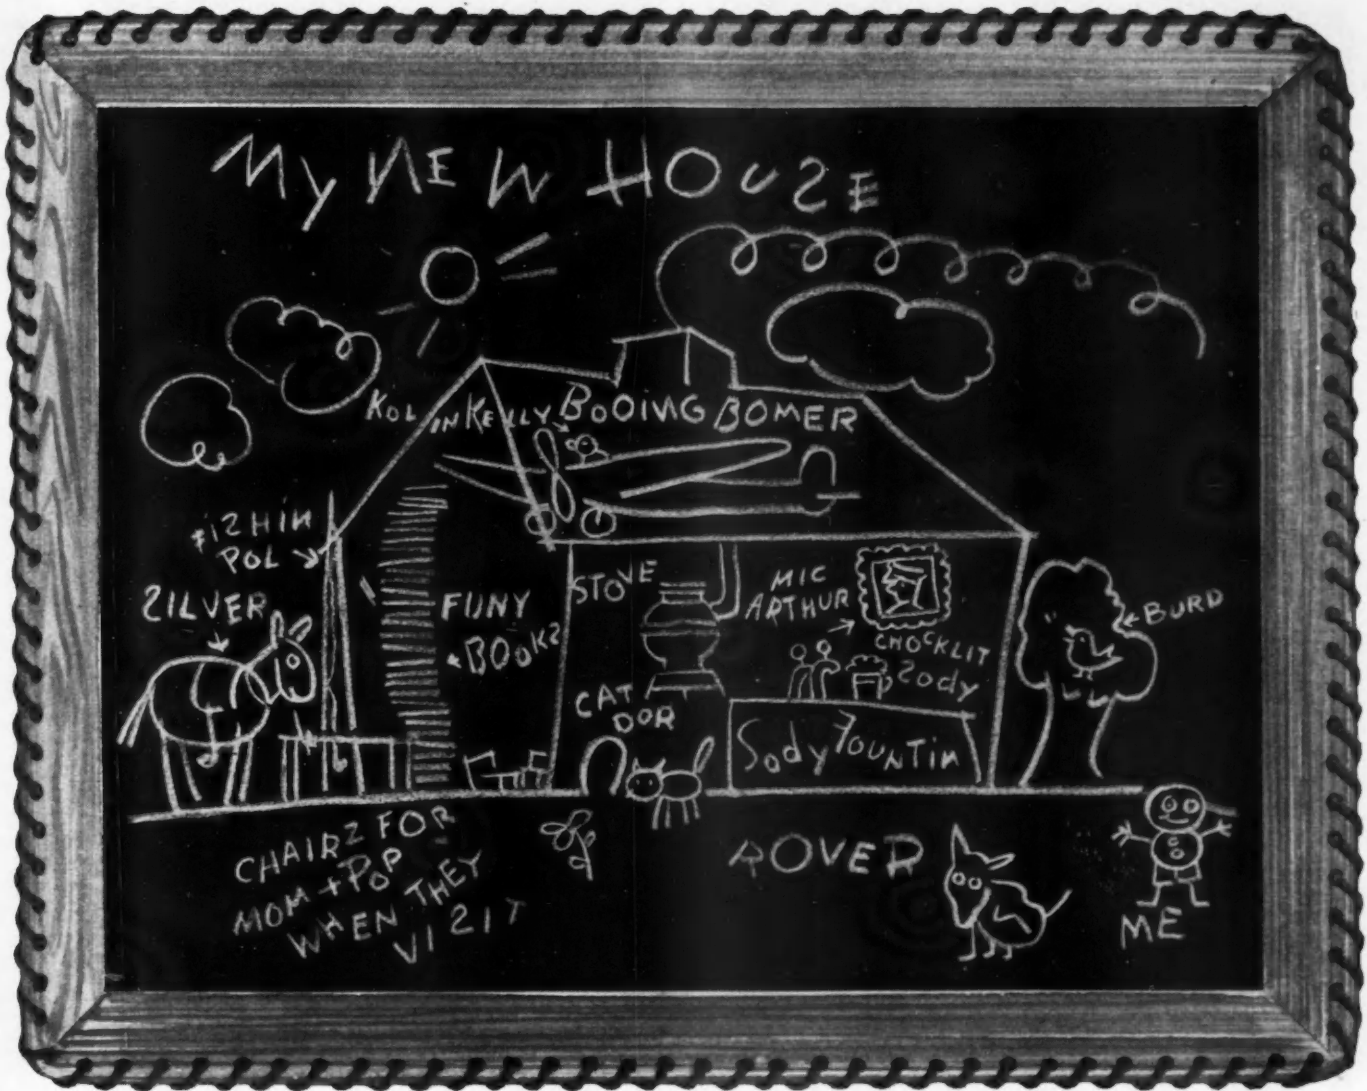 MY NEW HOUSE
KOLINKELLY BOOING BOMER
FISHIN
POL
SILVER
FUNY
BOOKS
STOVE
MIC
ARTHUR
CHOCKLIT
SODY
BURD
CAT
DOR
Sody FOUNTIN
CHAIRZ FOR
MOM + POP
WHEN THEY
VISIT
ROVER
ME